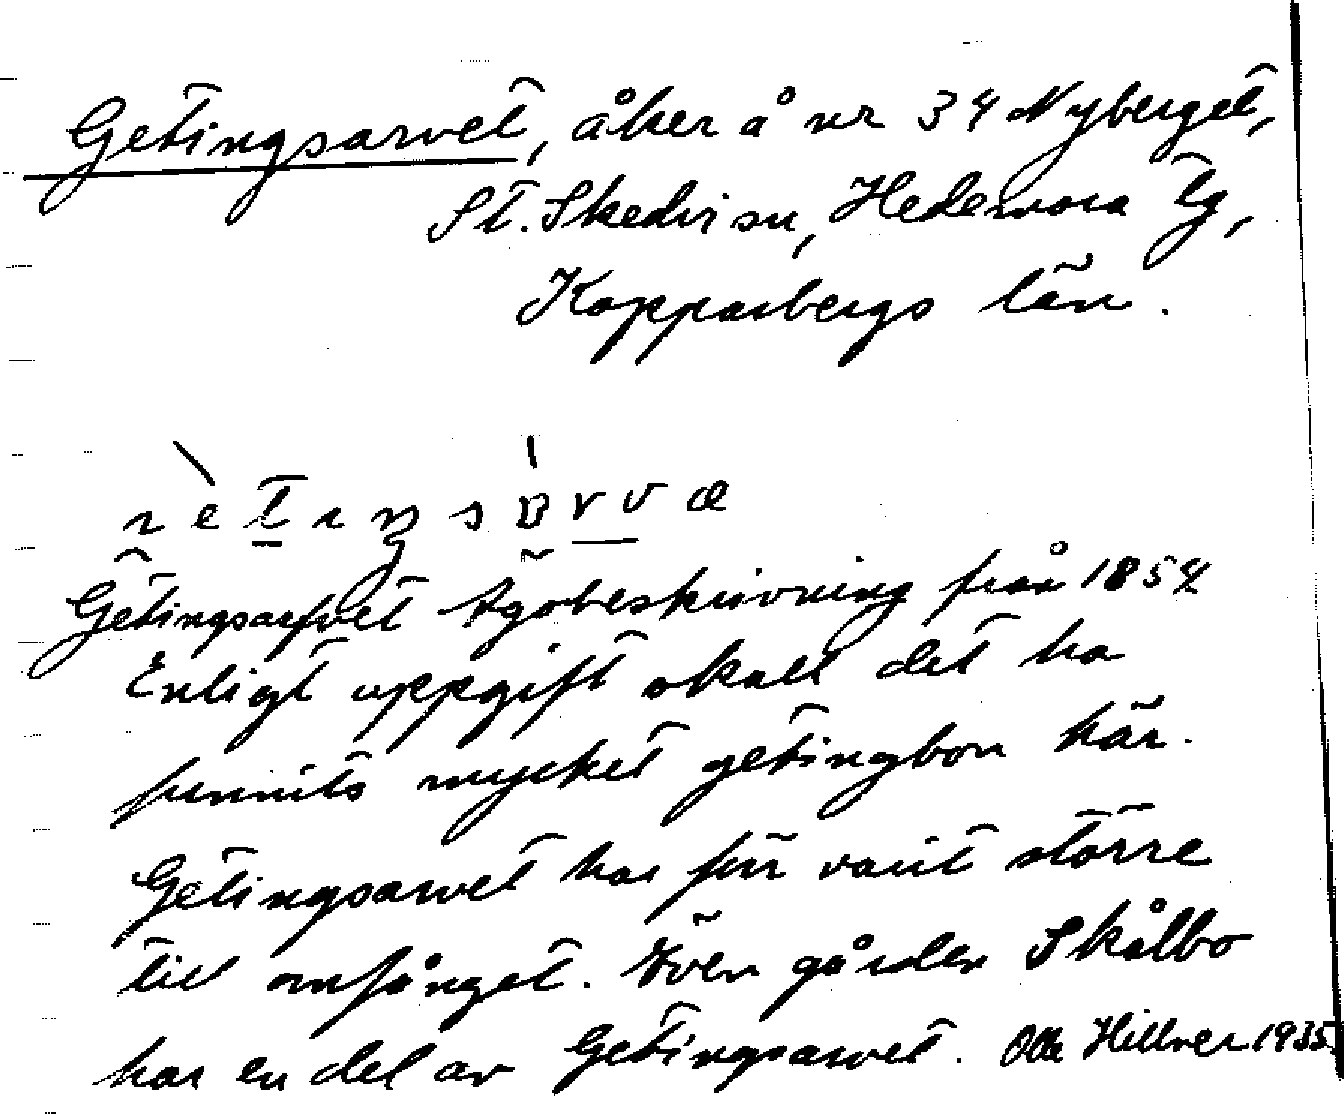 Getingsarvet, åker å nr 34 Nyberget,
St. Skedvi sn, Hedemora tg,
Kopparbergs län.
Getingsarfvet Ägobeskrivning från 1854
Enligt uppgift skall det ha
funnits mycket getingbon här.
Getingsarvet har förr varit större
till omfånget. Även gården Skålbo
har en del av Getingsarvet. Olle Hillner 1935.